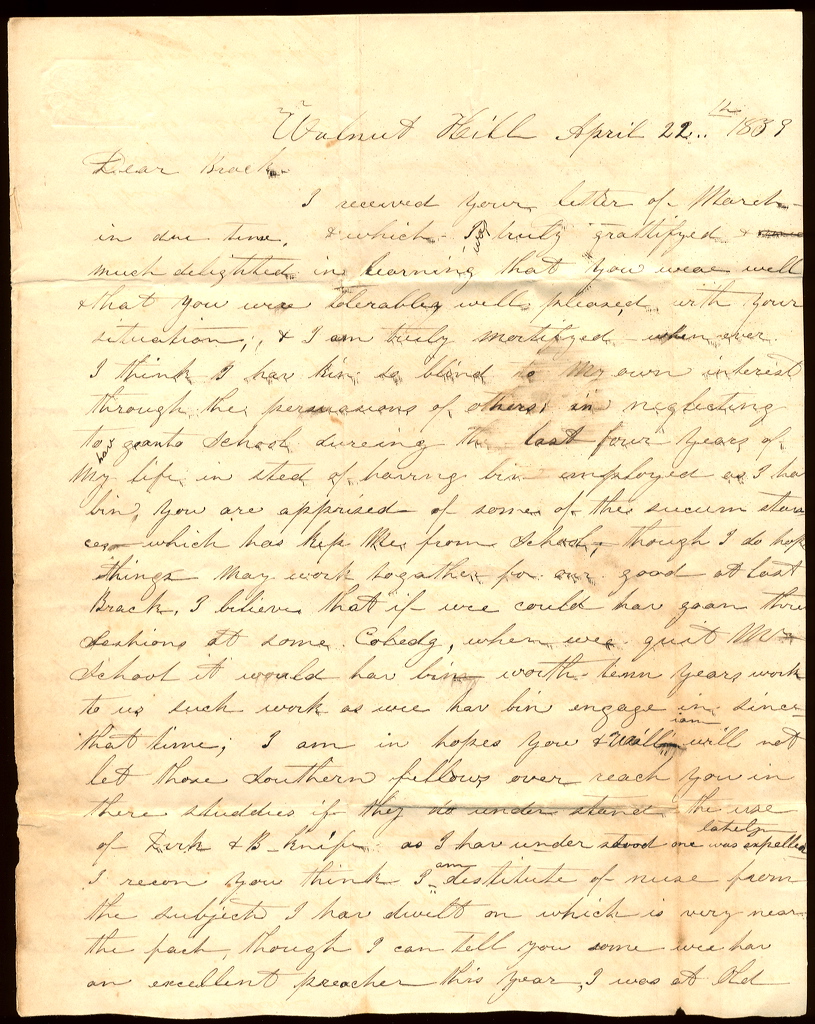 Walnut Hill April 22.. th 1839
Dear Brack.
I received your letter of March
in due time, & which I was truly grattifyed &
much delighted in learning that you weae well
& that you wre tolerably well pleased with your
situation, & I am truly mortifyed when ever
I think I hav bin so blind to My own interest
through the persuasions of others in neglecting
to hav goanto School dureing the last four years of
My life in sted of having bin employed as I hav
bin, you are apprised of some of the sucum stan
ces which has kep Me from School, though I do hop
things may work togather for our good at last
Brack, I believe that if wee could hav goan thre
Seshions at some Coledg, when wee quit
School it would hav bin worth tenn years work
to us such work as wee hav bin engage in since
that time; I am in hopes you & William will not
let those Southern fellows over reach you in
there studdies if they do under stand the use
of Dirk & B-Knife as I hav under stood one was lately expelled
I recon you think I am destitute of nuse from
the subject I hav dwelt on which is very near
the fact, though I can tell you some wee hav
an excellent preacher this year, I was at Old